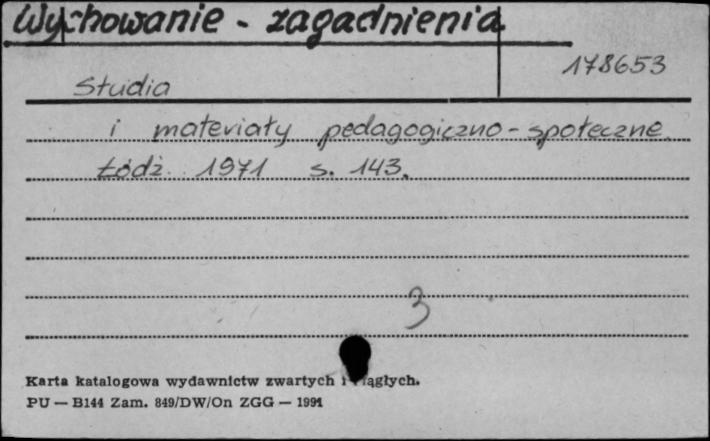 Wychowanie - zagadnienia
178653
Studia
i materiały pedagogiczno-społeczne.
Łódź. 1971 s. 143.
3
Karta katalogowa wydawnictw zwartych i ciągłych.
PU — B144 Zam. 849/DW/On ZGG — 1991